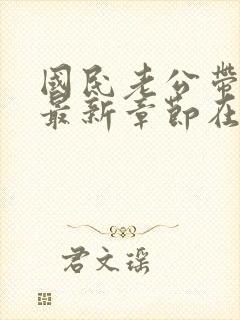 國民老公帶
最新章節在
君文瑤